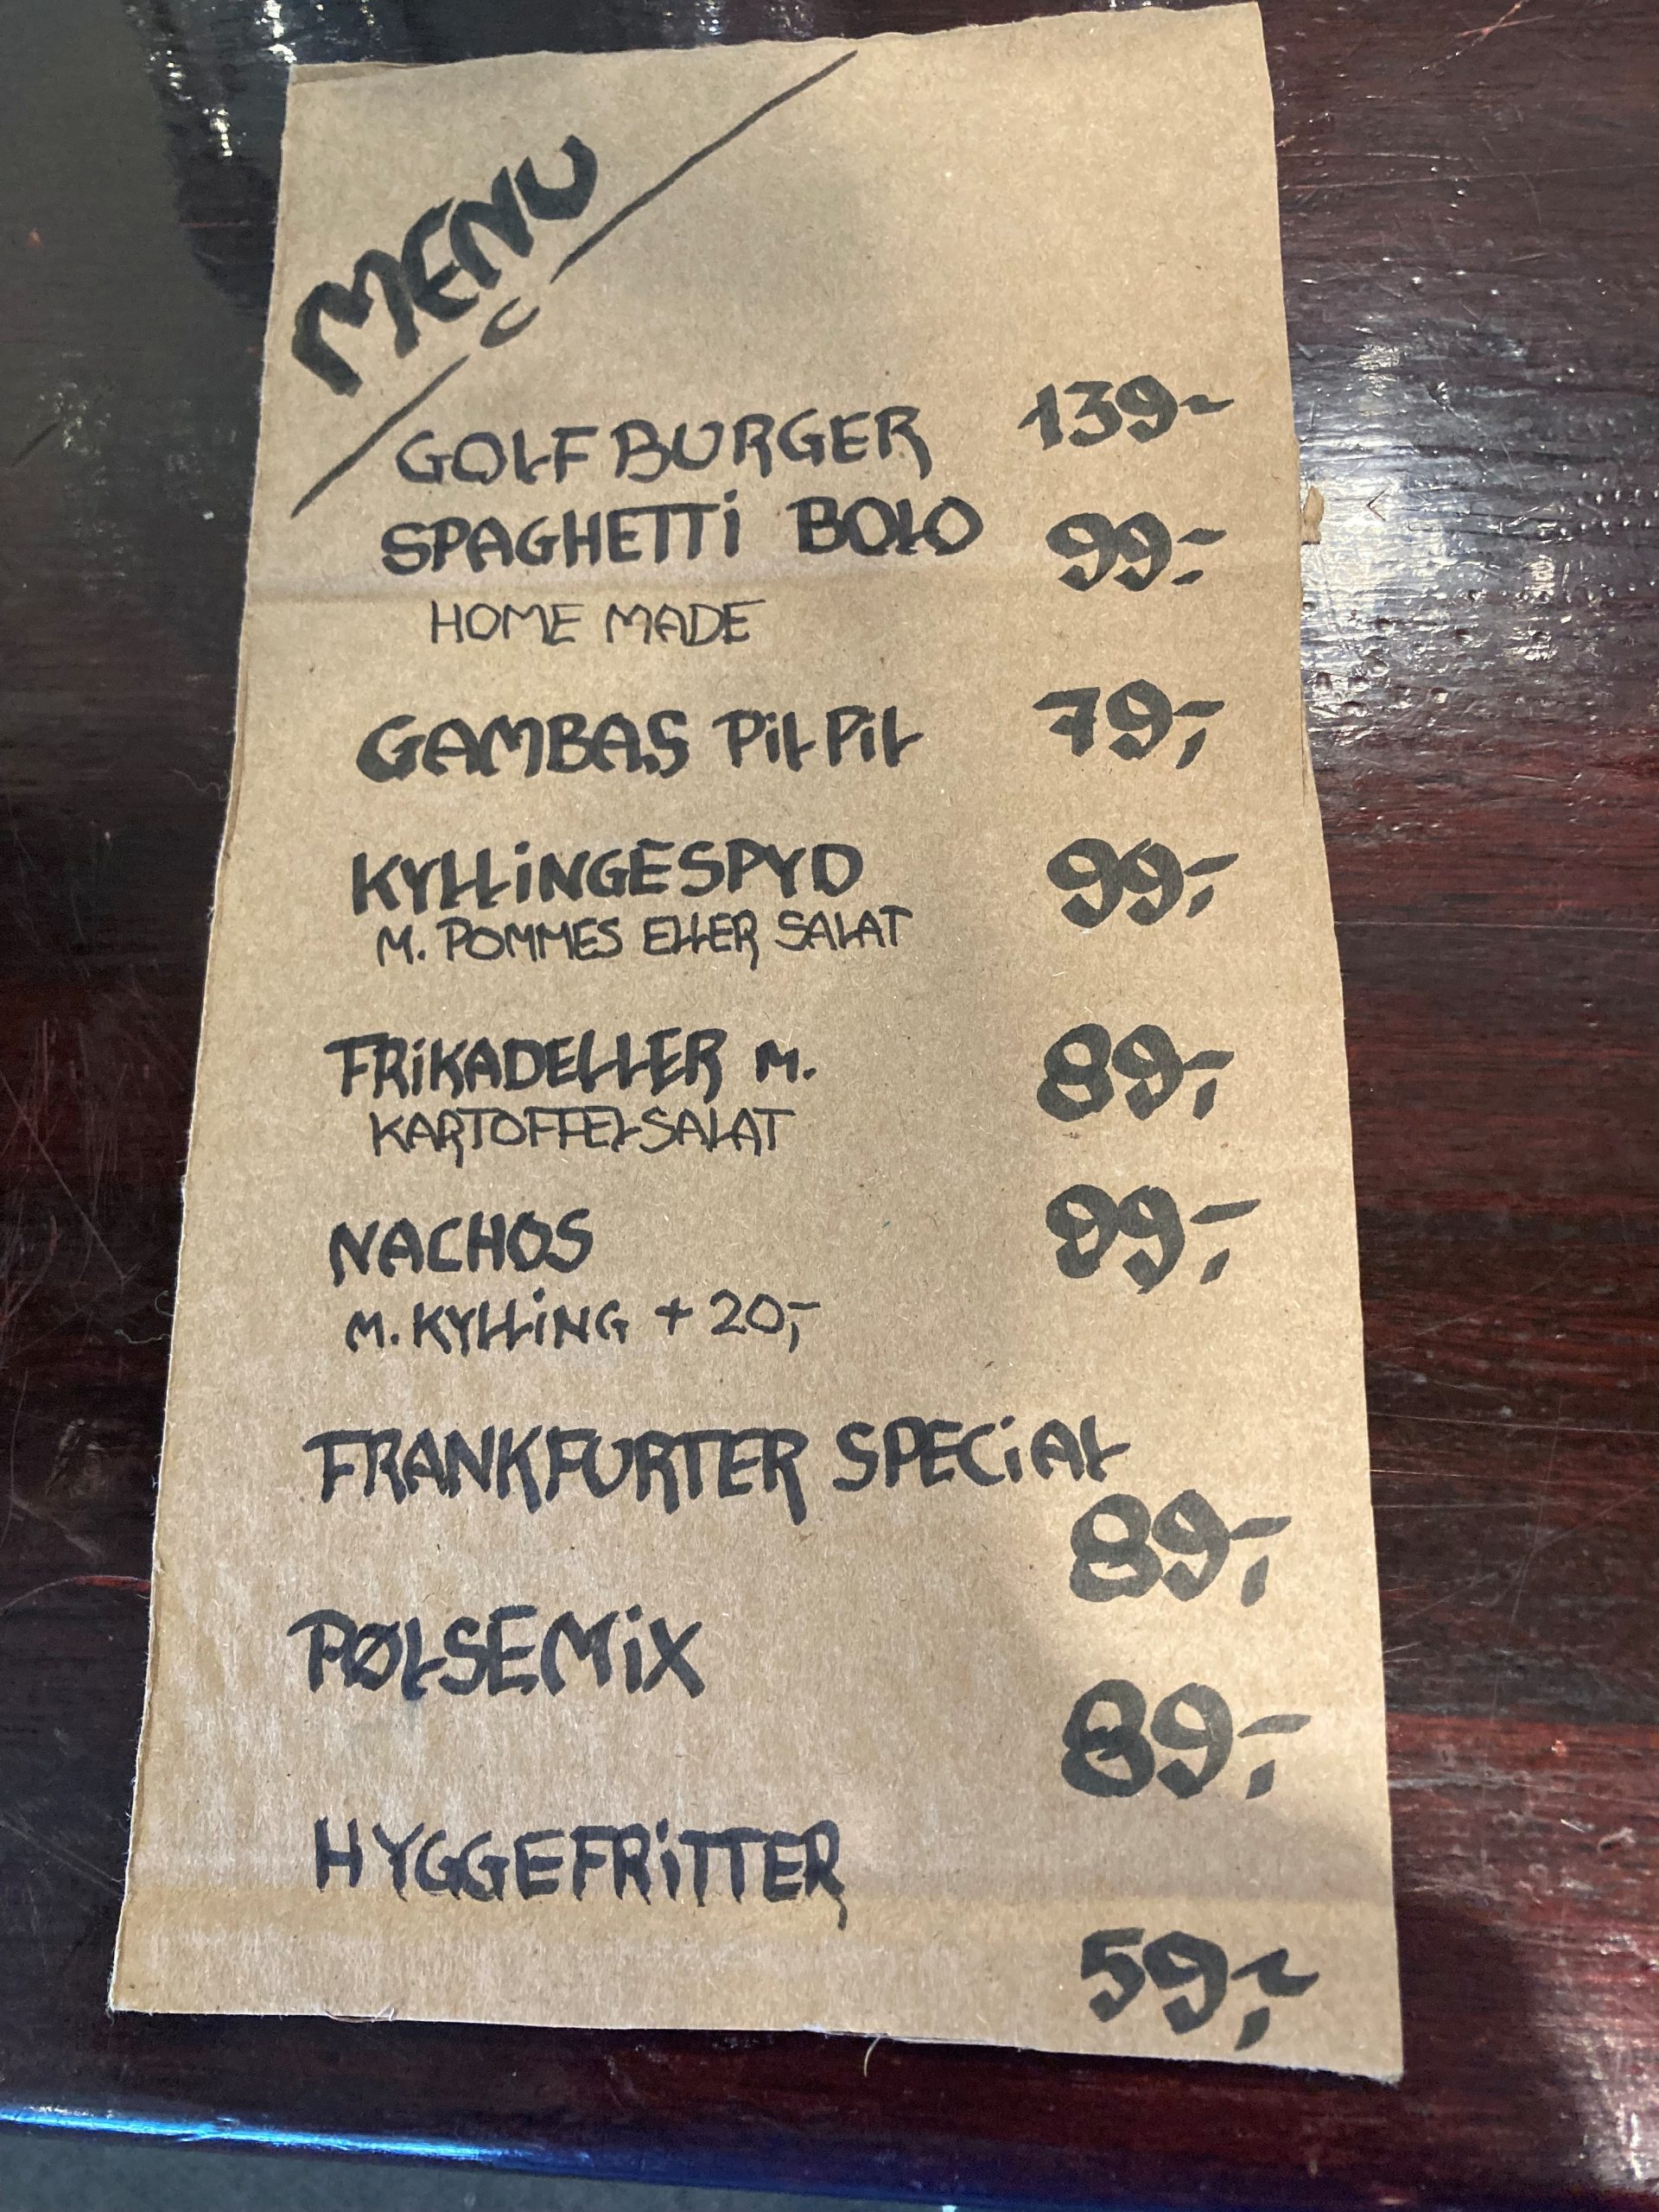 MENU
GOLF BURGER 139-
SPAGHETTi BOLO 99:-
HOME MADE
GAMBAS PiLPiL 79,-
KYLLiNGESPYD 99,-
M. POMMES ELLER SALAT
FRiKADELLER M. 89,-
KARTOFFELSALAT
NACHOS 99,-
M. KYLLiNG + 20,-
FRANKFURTER SPECiAL
89,-
PØLSEMiX
89,-
HYGGEFRiTTER
59,-